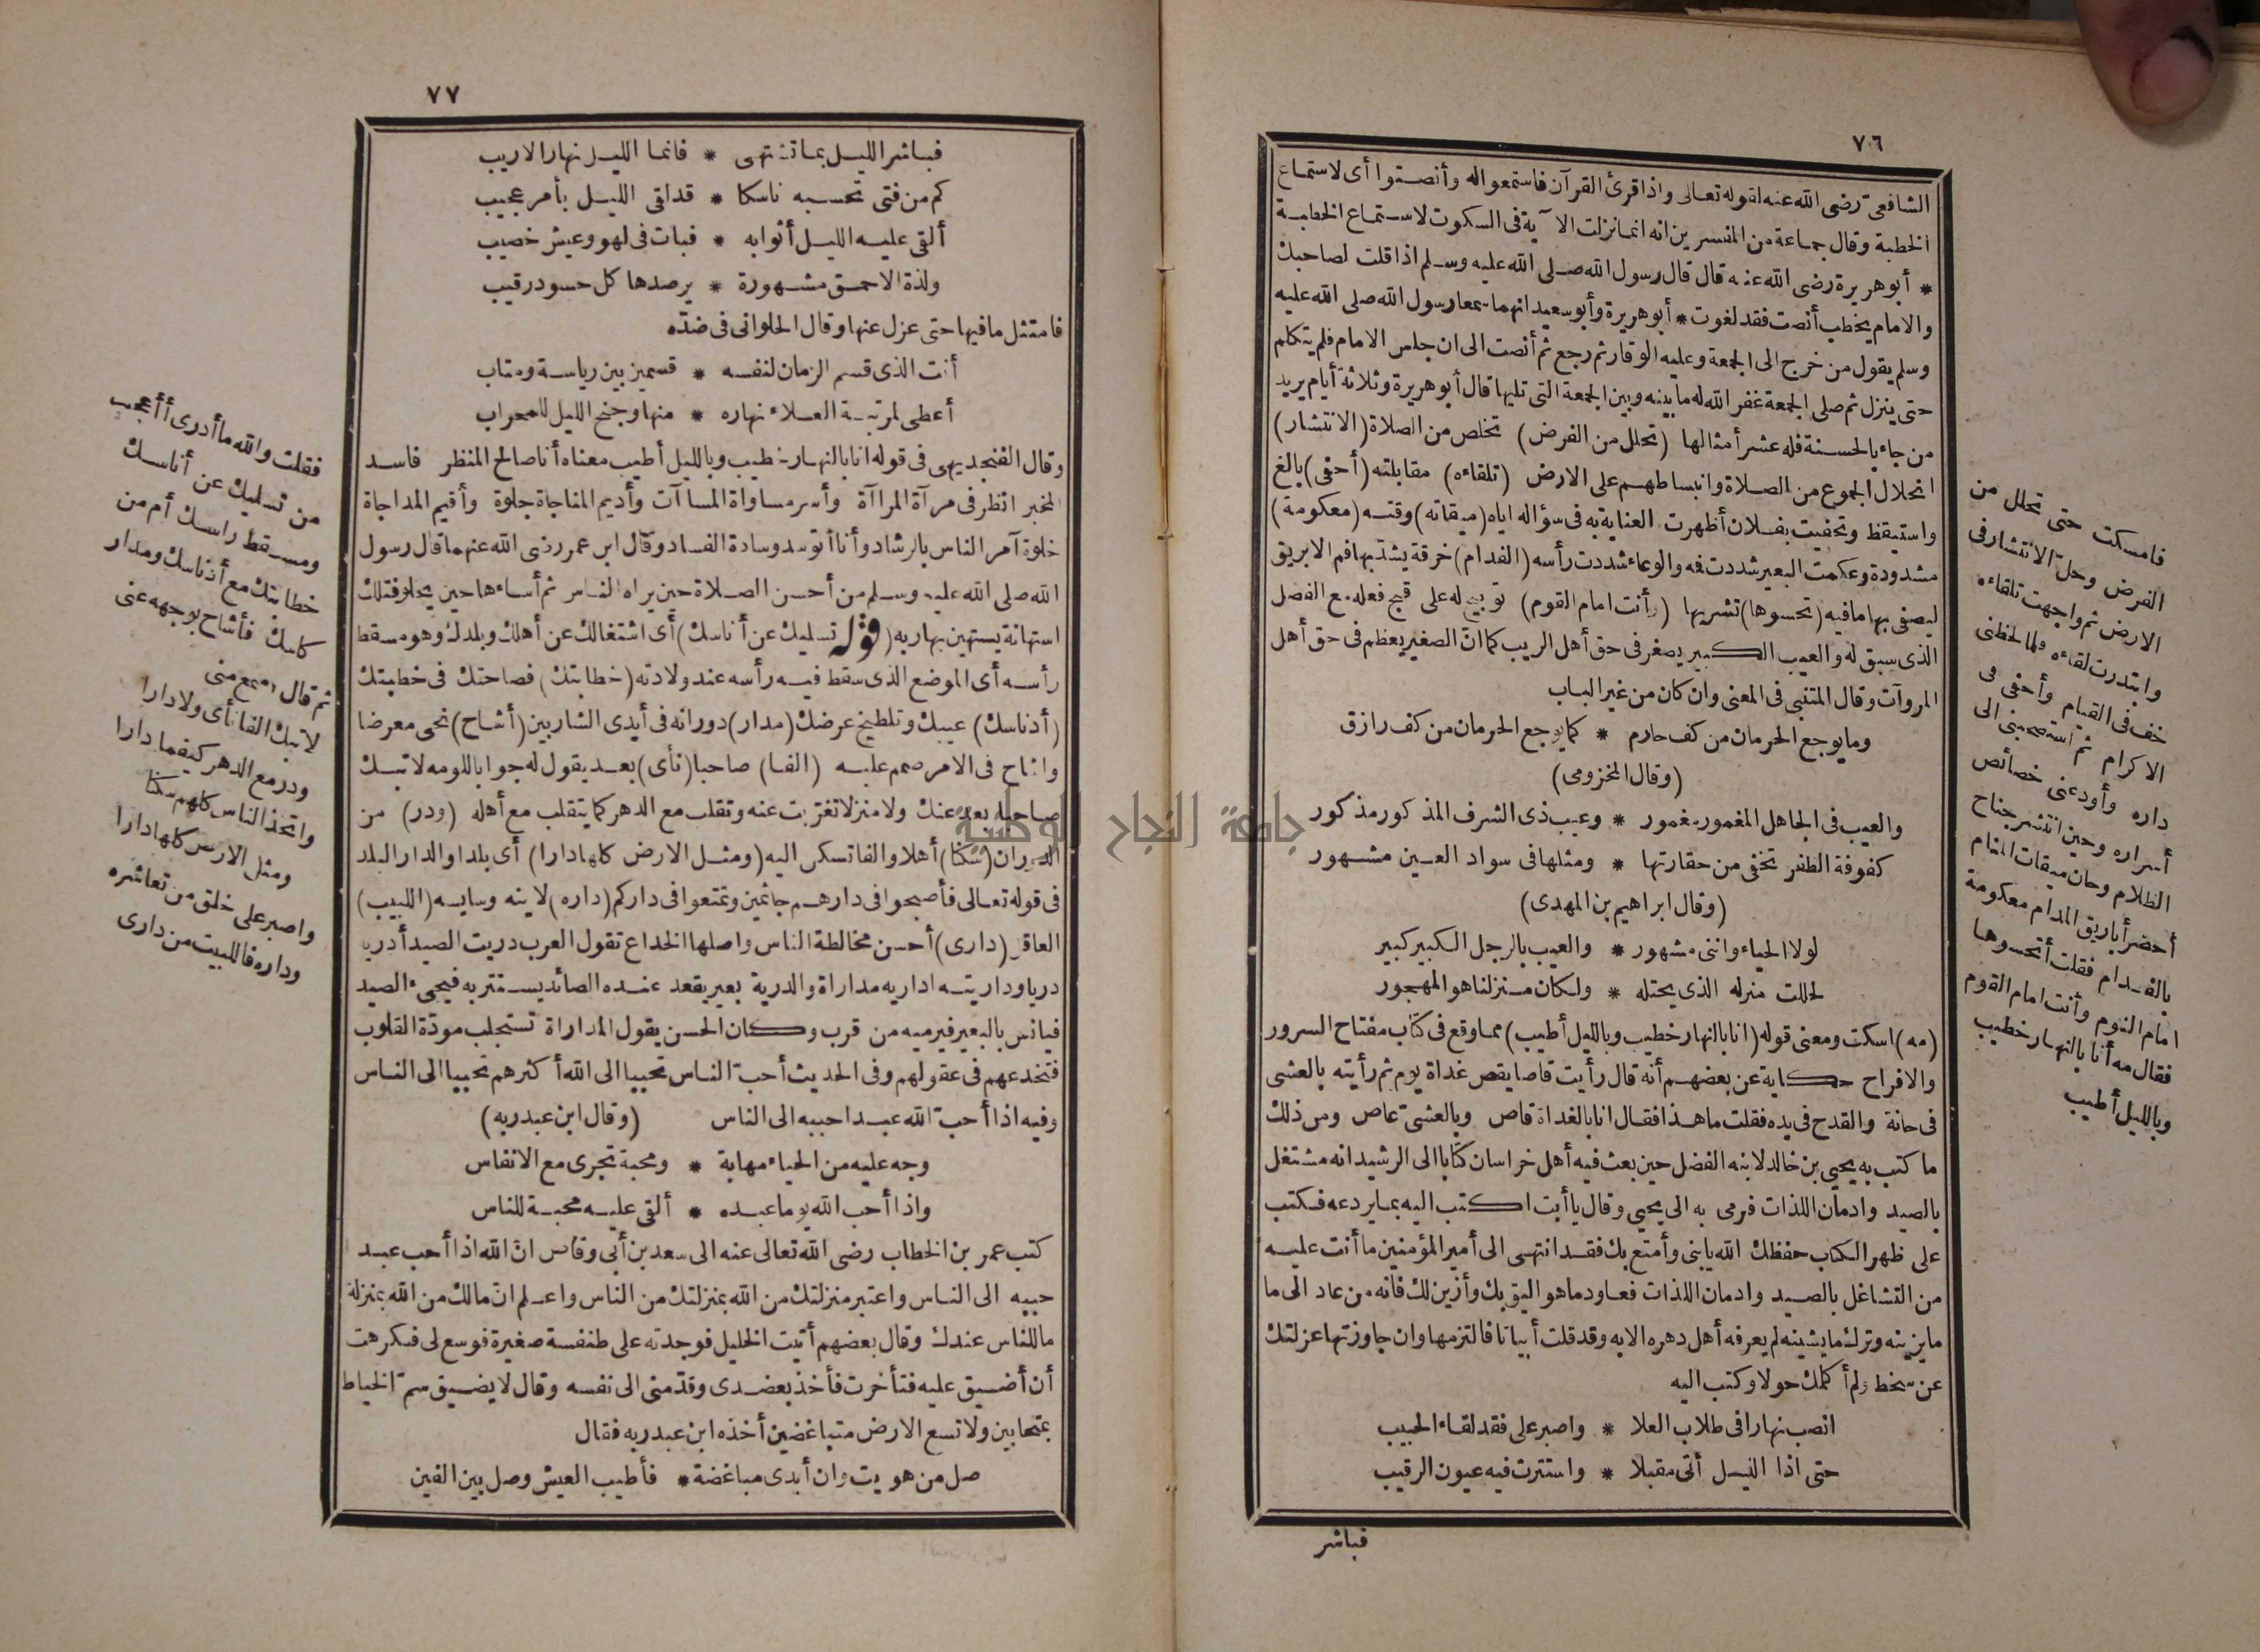 ٧٦
الشافعيّ رضي الله عنه لقوله تعالى واذا قرئ القرآن فاستمعوا له وأنصتوا أى لاستماع
الخطبة وقال جماعة من المفسرين انه انما نزلت الآية فى السكوت لاستماع الخطبة
* أبو هريرة رضى الله عنه قال قال رسول الله صلى الله عليه وسلم اذا قلت لصاحبك
والامام يخطب أنصت فقد لغوت * أبو هريرة وأبو سعيد انهما سمعا رسول الله صلى الله عليه
وسلم يقول من خرج الى الجمعة وعليه الوقار ثم رجع ثم أنصت الى ان جلس الامام فلم يتكلم
حتى ينزل ثم صلى الجمعة غفر الله له ما بينه وبين الجمعة التى تليها قال أبو هريرة وثلاثة أيام يريد
من جاء بالحسنة فله عشر أمثالها (تحلل من الفرض) تخلص من الصلاة (الانتشار)
انحلال الجموع من الصلاة وانبساطهم على الارض (تلقاءه) مقابلته (أحفى) بالغ
واستيقظ وتحفيت بفلان أظهرت العناية به فى سؤاله اياه (ميقاته) وقته (معكومة)
مشدودة وعكمت البعير شددت فه والوعاء شددت رأسه (الفدام) خرقة يشدّ بها فم الابريق
ليصفى بها ما فيه (تحسوها) تشربها (وأنت امام القوم) توبيخ له على قبح فعله مع الفضل
الذى سبق له والعيب الكبير يصغر فى حق أهل الريب كما انّ الصغير يعظم فى حق أهل
المروآت وقال المتنبى فى المعنى وان كان من غير الباب
وما يوجع الحرمان من كف حارم * كما يوجع الحرمان من كف رازق
(وقال المخزومى)
والعيب فى الجاهل المغمور مغمور * وعيب ذى الشرف المذكور مذكور
كفوفة الظفر تخفى من حقارتها * ومثلها فى سواد العين مشهور
(وقال ابراهيم بن المهدى)
لولا الحياء وانى مشهور * والعيب بالرجل الكبير كبير
لحللت منزله الذى يحتله * ولكان منزلنا هو المهجور
(مه) اسكت ومعنى قوله (انا بالنهار خطيب وبالليل أطيب) مما وقع فى كتاب مفتاح السرور
والافراح حكاية عن بعضهم أنه قال رأيت قاصا يقص غداة يوم ثم رأيته بالعشى
فى حانة والقدح فى يده فقلت ما هذا فقال انا بالغداة قاص وبالعشىّ عاص ومن ذلك
ما كتب به يحيى بن خالد لابنه الفضل حين بعث فيه أهل خراسان كتابا الى الرشيد انه مشتغل
بالصيد وادمان اللذات فرمى به الى يحيى وقال يا أبت اكتب اليه بما يردعه فكتب
على ظهر الكتاب حفظك الله يا بنى وأمتع بك فقد انتهى الى أمير المؤمنين ما أنت عليه
من التشاغل بالصيد وادمان اللذات فعاود ما هو اليق بك وأزين لك فانه من عاد الى ما
ما يزينه وترك ما يشينه لم يعرفه أهل دهره الا به وقد قلت أبياتا فالتزمها وان جاوزتها عزلتك
عن سخط ولم أكلمك حولا وكتب اليه
انصب نهارا فى طلاب العلا * واصبر على فقد لقاء الحبيب
حتى اذا الليل أتى مقبلا * واستترت فيه عيون الرقيب
فباشر
فامسكت حتى تحلل من
الفرض وحلّ الانتشار فى
الارض ثم واجهت تلقاءه
وابتدرت لقاءه ولما لحظنى
خف فى القيام وأحفى فى
الاكرام ثم استصحبنى الى
داره وأودعنى خصائص
أسراره وحين انتشر جناح
الظلام وحان ميقات المنام
أحضر أباريق المدام معكومة
بالفدام فقلت أتحسوها
امام النوم وأنت امام القوم
فقال مه أنا بالنهار خطيب
وبالليل أطيب
٧٧
فباشر الليل بما تشتهى * فانما الليل نهار الاريب
كم من فتى تحسبه ناسكا * قد اقى الليل بأمر عجيب
ألقى عليه الليل أثوابه * فبات فى لهو وعيش خصيب
ولذة الاحمق مشهورة * يرصدها كل حسود رقيب
فامتثل ما فيها حتى عزل عنها وقال الحلوانى فى ضدّه
أنت الذى قسم الزمان لنفسه * قسمين بين رياسة ومتاب
أعطى لمرتبة العلاء نهاره * منها وجنح الليل للمحراب
وقال الفنجديهى فى قوله انا بالنهار خطيب وبالليل أطيب معناه أنا صالح المنظر فاسد
المخبر انظر فى مرآة المراآة وأسر مساواة المسا آت وأديم المناجاة جلوة وأقيم المداجاة
خلوة آمر الناس بالرشاد وأنا أتوسد وسادة الفساد وقال ابن عمر رضى الله عنهما قال رسول
الله صلى الله عليه وسلم من أحسن الصلاة حين يراه الناس ثم أساءها حين يخلو فتلك
استهانة يستهين بها ربه (قوله تسليك عن أناسك) أى اشتغالك عن أهلك وبلدك وهو مسقط
رأسه أى الموضع الذى سقط فيه رأسه عند ولادته (خطابتك) فصاحتك فى خطبتك
(أدناسك) عيبك وتلطيخ عرضك (مدار) دورانه فى أيدى الشاربين (أشاح) نحى معرضا
واشاح فى الامر صمم عليه (الفا) صاحبا (نأى) بعد يقول له جوابا للومه لا تبك
صاحبا بعد عنك ولا منزلا تغرّبت عنه وتقلب مع الدهر كما يتقلب مع أهله (ودر) من
الدوران (سكنا) أهلا والفا تسكن اليه (ومثل الارض كلها دارا) أى بلدا والدار البلد
فى قوله تعالى فأصبحوا فى دارهم جاثمين وتمتعوا فى داركم (داره) لاينه وسايسه (اللبيب)
العاقل (دارى) أحسن مخالطة الناس واصلها الخداع تقول العرب دريت الصيد أدريه
دريا وداريته اداريه مداراة والدرية بعير يقعد عنده الصائد يستتر به فيجىء الصيد
فيانس بالبعير فيرميه من قرب وكان الحسن يقول المداراة تستجلب مودّة القلوب
فتخدعهم فى عقولهم وفى الحديث أحبّ الناس تحببا الى الله أكثرهم تحببا الى الناس
وفيه اذا أحبّ الله عبدا حببه الى الناس (وقال ابن عبد ربه)
وجه عليه من الحياء مهابة * ومحبة تجرى مع الانفاس
واذا أحب الله يوما عبده * ألقى عليه محبة للناس
كتب عمر بن الخطاب رضى الله تعالى عنه الى سعد بن أبى وقاص انّ الله اذا أحب عبدا
حببه الى الناس واعتبر منزلتك من الله بمنزلتك من الناس واعلم انّ مالك من الله بمنزلة
ما للناس عندك وقال بعضهم أتيت الخليل فوجدته على طنفسة صغيرة فوسع لى فكرهت
أن أضيق عليه فتأخرت فأخذ بعضدى وقدّمنى الى نفسه وقال لا يضيق سمّ الخياط
بمتحابين ولا تسع الارض متباغضين أخذه ابن عبد ربه فقال
صل من هويت وان أبدى مباغضة * فأطيب العيش وصل بين الفين
فقلت والله ما أدرى أأعجب
من تسليك عن أناسك
ومسقط راسك أم من
خطابتك مع أدناسك ومدار
كاسك فأشاح بوجهه عنى
ثم قال اسمع منى
لا تبك الفا نأى ولا دارا
ودر مع الدهر كيفما دارا
واتخذ الناس كلهم سكنا
ومثل الارض كلها دارا
واصبر على خلق من تعاشره
وداره فاللبيت من دارى
جامعة النجاح الوطنية